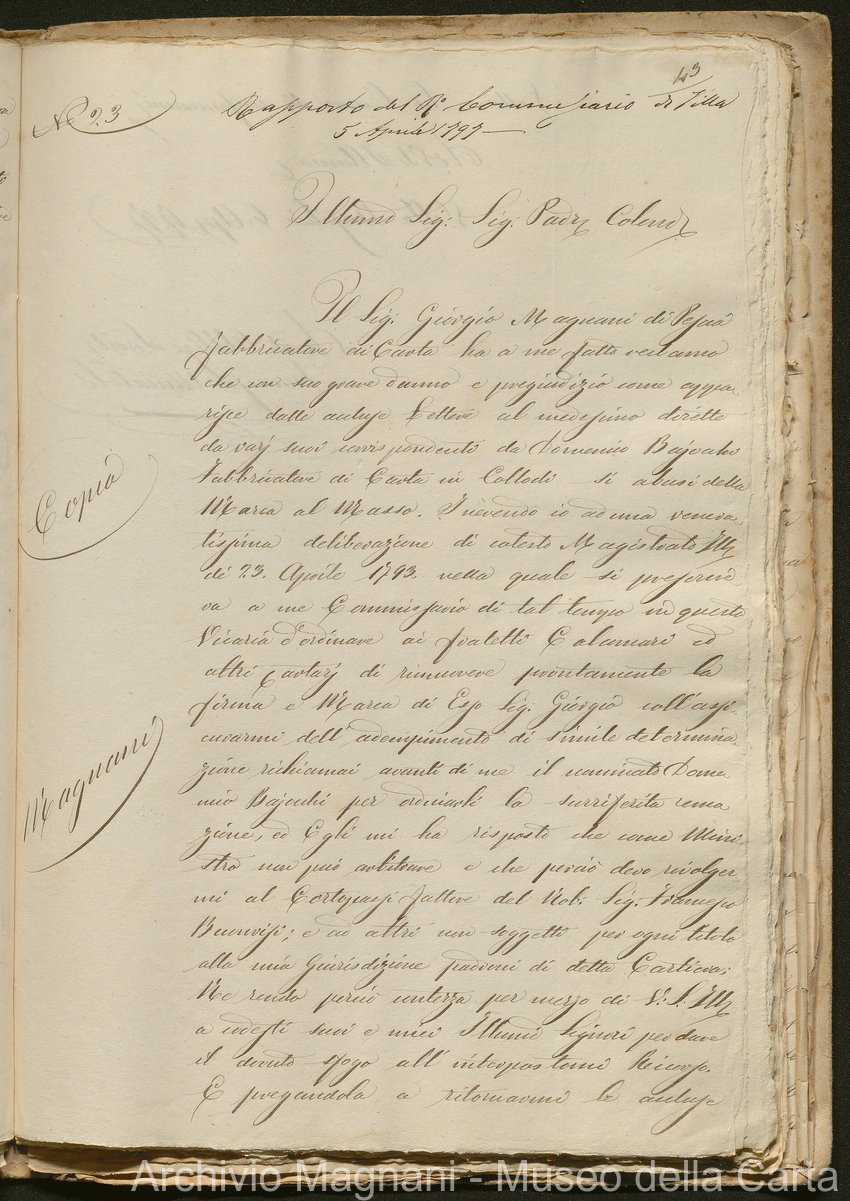 43
N° 23
Rapporto del R° Commessario di Villa
5 Aprile 1797
Illmo Sig: Sig. Padr Colend
Il Sig. Giorgio Magnani di Pescia
fabbricatore di Carta ha a me fatto reclamo
che con suo grave danno e pregiudizio come appa-
risce dalle accluse Lettere al medesimo dirette
da varj suoi corrispondenti da Domenico Bajocchi
Fabbricatore di Carta in Collodi si abusi della
Marca al Masso. Inerendo io ad una venera-
tissima deliberazione di cotesto Magistrato Ill
di 23. Aprile 1793. nella quale si prescrive-
va a me Commissario di tal tempo in questo
Vicaria d'ordinare ai fratelli Calamari ed
altri Cartarj di rimuovere prontamente la
firma e Marca di Esso Sig. Giorgio coll'assi-
curarmi dell'adempimento di simile determina-
zione richiamai avanti di me il nominato Dome-
nico Bajocchi per ordinarli la surriferita remo-
zione, ed Egli mi ha risposto che come Mini-
stro non può arbitrare e che perciò devo rivolger
mi al Cortopassi fattore del Nob. Sig. Francesco
Buonvisi; e ad altri non soggetti per ogni titolo
alla mia Giurisdizione padroni di detta Cartiera;
Ne rendo perciò contezza per mezzo di V. S. Ill
a codesti suoi e miei Illmi Signori per dare
il dovuto sfogo all'interpostomi Ricorso.
E pregandola a ritornarmi le accluse
Copia
Magnani
Archivio Magnani - Museo della Carta